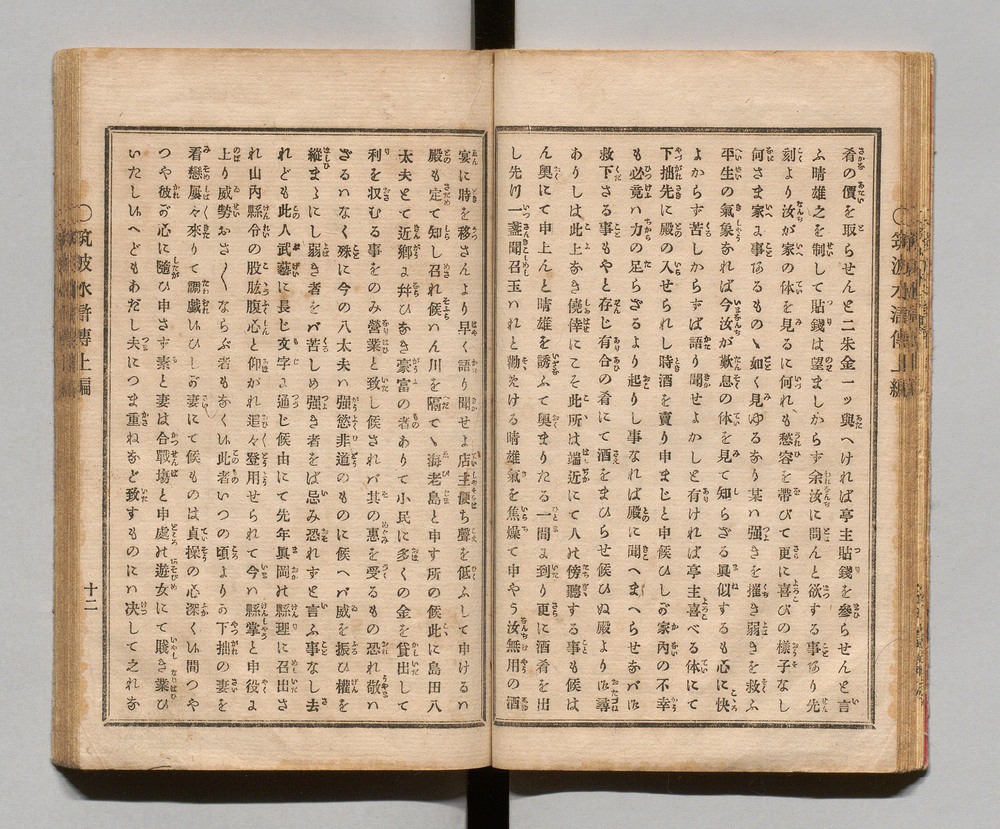 肴の價を取らせんと二朱金一ッ與へければ亭主貼錢を參らせんと言
ふ晴雄之を制して貼錢は望ましからず余汝に問んと欲する事あり先
刻より汝が家の体を見るに何れも愁容を帶びて更に喜びの樣子なし
何さま家に事あるものゝ如く見ゆるなり某ハ强きを摧き弱きを救ふ
平生の氣象なれば今汝が歎息の体を見て知らざる眞似するも心に快
よからず苦しからずば語り聞せよかしと有ければ亭主喜べる体にて
下拙先に殿の入せられし時酒を賣り申まじと申候ひしが家內の不幸
も必竟ハ力の足らざるより起りし事なれば殿に聞へまへらせなバ御
救下さる事もやと存じ有合の肴にて酒をまひらせ候ひぬ殿より御尋
ありしは此上なき僥倖にこそ此所は端近にて人の傍聽する事も候は
ん奧にて申上んと晴雄を誘ふて奧まりたる一間に到り更に酒肴を出
し先何一盞聞召玉ハれと勸めける晴雄氣を焦燥て申やう汝無用の酒
宴に時を移さんより早く語り聞せよ店主便ち聲を低ふして申けるハ
殿も定て知し召れ候ハん川を隔てゝ海老島と申す所の候此に島田八
太夫とて近鄕に幷ひなき豪富の者ありて小民に多くの金を貸出して
利を収むる事をのみ營業と致し候されバ其の惠を受るもの恐れ敬ハ
ざるハなく殊に今の八太夫ハ强慾非道のものに候へバ威を振ひ權を
縱まゝにし弱き者をバ苦しめ强き者をば忌み恐れずと言ふ事なし去
れども此人武藝に長じ文字に通じ候由にて先年眞岡の縣理に召出さ
れ山內縣令の股肱腹心と仰がれ追々登用せられて今ハ縣掌と申役に
上り威勢おさ〱ならぶ者もなく候此者いつの頃よりか下拙の妻を
看戀屢々來りて調戯候ひしが妻にて候ものは貞操の心深く候間つや
つや彼が心に隨ひ申さず素と妻は合戰塲と申處の遊女にて賤き業ひ
いたし候へどもあだし夫につま重ねなど致すものにハ决して之れな
〇筑波水滸傳上編
十二